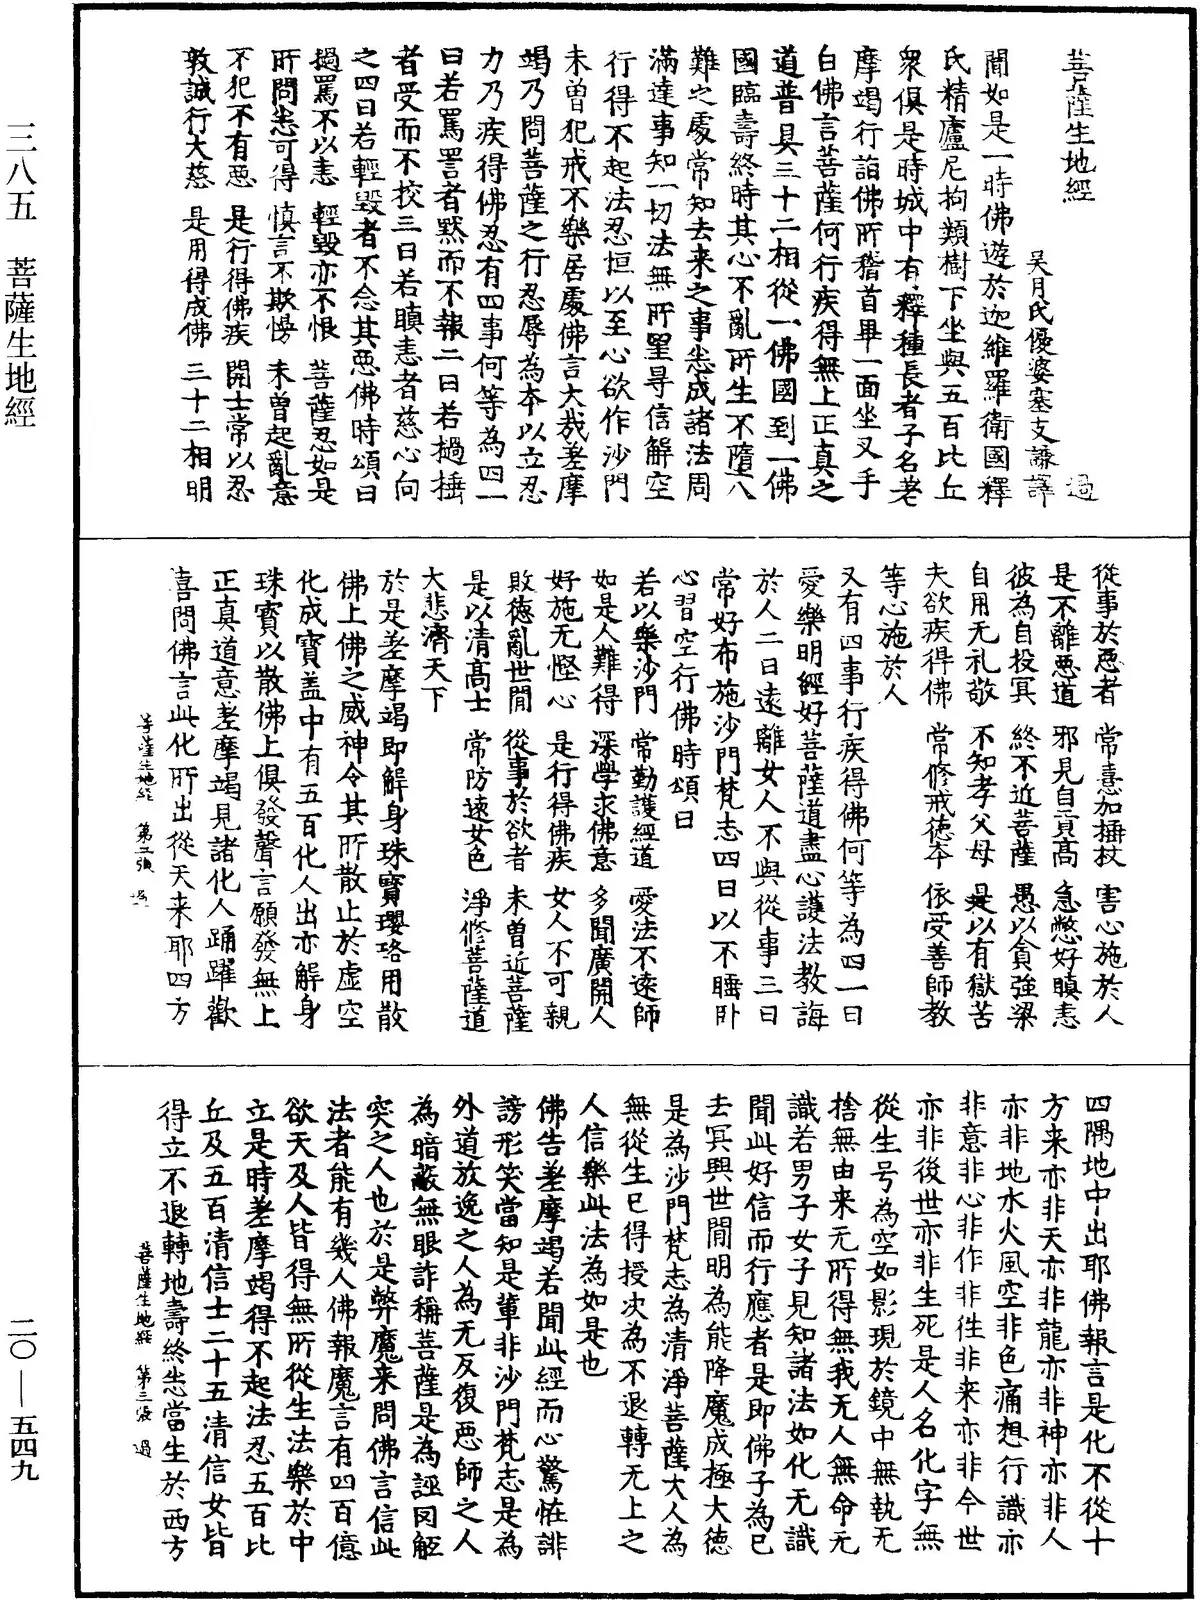 菩薩生地經　過
吳月氏優婆塞支謙譯
聞如是一時佛遊於迦維羅衛國釋
氏精廬尼拘類樹下坐與五百比丘
衆俱是時城中有釋種長者子名差
摩竭行詣佛所稽首畢一面坐叉手
白佛言菩薩何行疾得無上正真之
道普具三十二相從一佛國到一佛
國臨壽終時其心不亂所生不墮八
難之處常知去来之事悉成諸法周
滿達事知一切法無所星㝵信解空
行得不起法忍恒以至心欲作沙門
未曾犯戒不樂居處佛言大㢤差摩
竭乃問菩薩之行忍辱為本以立忍
力乃疾得佛忍有四事何等為四一
曰若罵詈者黙而不報二曰若撾捶
者受而不挍三曰若瞋恚者慈心向
之四曰若輕毀者不念其惡佛時頌曰
撾罵不以恚　輕毀亦不恨　菩薩忍如是
所問悉可得　慎言不欺慢　未曽起亂意
不犯不有惡　是行得佛疾　開士常以忍
敦誠行大慈　是用得成佛　三十二相明
從事於惡者　常憙加捶杖　害心施於人
是不離惡道　邪見自貢高　急憋好瞋恚
彼為自投冥　終不近菩薩　愚以貪強梁
自用无礼敬　不知孝父母　是以有獄苦
夫欲疾得佛　常修戒徳本　依受善師教
等心施於人
又有四事行疾得佛何等為四一曰
愛樂明經好菩薩道盡心護法教誨
於人二曰遠離女人不與從事三曰
常好布施沙門梵志四曰以不睡卧
心習空行佛時頌曰
若以樂沙門　常勤護經道　愛法不遠師
如是人難得　深學求佛意　多聞廣開人
好施无慳心　是行得佛疾　女人不可親
敗徳亂世閒　從事於欲者　未曽近菩薩
是以清髙士　常防遠女色　淨修菩薩道
大悲濟天下
於是差摩竭即解身珠寶瓔珞用散
佛上佛之威神令其所散止於虛空
化成寶盖中有五百化人出亦解身
珠寶以散佛上俱發聲言願發無上
正真道意差摩竭見諸化人踊躍歡
喜問佛言此化所出從天来耶四方
菩薩生地經　第二張　過
四隅地中出耶佛報言是化不從十
方来亦非天亦非龍亦非神亦非人
亦非地水火風空非色痛想行識亦
非意非心非作非徃非来亦非今世
亦非後世亦非生死是人名化字無
從生号為空如影現於鏡中無執无
捨無由来无所得無我无人無命无
識若男子女子見知諸法如化无識
聞此好信而行應者是即佛子為已
去冥興世閒明為能降魔成極大徳
是為沙門梵志為清淨菩薩大人為
無從生已得授次為不退轉无上之
人信樂此法為如是也
佛告差摩竭若聞此經而心驚恠誹
謗形笑當知是軰非沙門梵志是為
外道放逸之人為无反復惡師之人
為暗蔽無眼詐稱菩薩是為誣罔觝
突之人也於是弊魔来問佛言信此
法者能有幾人佛報魔言有四百億
欲天及人皆得無所從生法樂於中
立是時差摩竭得不起法忍五百比
丘及五百清信士二十五清信女皆
得立不退轉地壽終悉當生於西方
菩薩生地經　第三張　過
三八五　菩薩生地經
二〇——五四九